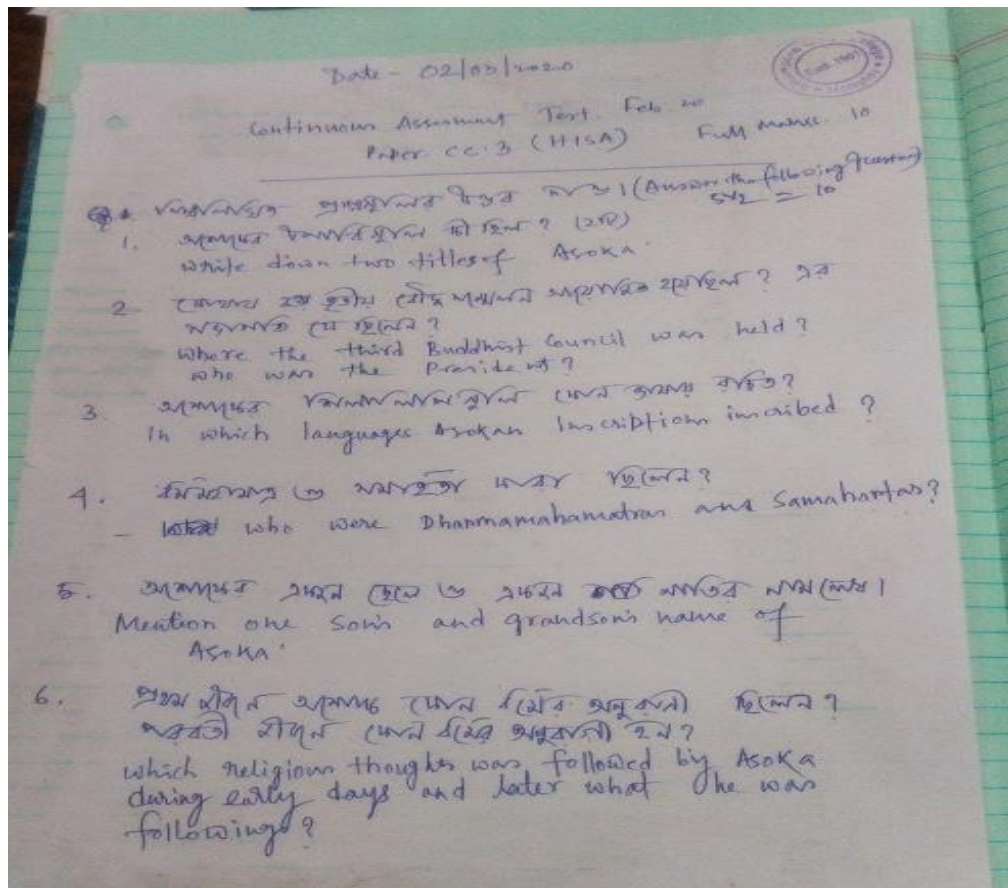 Date - 02/03/2020
Estd. 1967
Continuous Assessment Test. Feb 20
Paper. CC.3 (HISA) Full Marks. 10
নিম্নলিখিত প্রশ্নগুলির উত্তর দাও। (Answer the following Question)
5x2 = 10
1. অশোকের উপাধিগুলি কী ছিল? (২টি)
write down two titles of Asoka.
2 কোথায় তৃতীয় বৌদ্ধ সম্মেলন আয়োজিত হয়েছিল? এর
সভাপতি কে ছিলেন?
where the third Buddhist Council was held?
who was the President?
3. অশোকের শিলালিপিগুলি কোন ভাষায় রচিত?
In which languages Asokan Inscriptions inscribed ?
4. ধর্মমহামাত্র ও সমাহর্তা কারা ছিলেন?
- who were Dhammamahamatras and Samahartas?
5. অশোকের একজন ছেলে ও একজন নাতির নাম লেখ।
Mention one son's and grandson's name of
Asoka.
6. প্রথম জীবনে অশোক কোন ধর্মের অনুরাগী ছিলেন?
পরবর্তী জীবনে কোন ধর্মের অনুরাগী হন?
which religious thoughts was followed by Asoka
during early days and later what he was
followings?